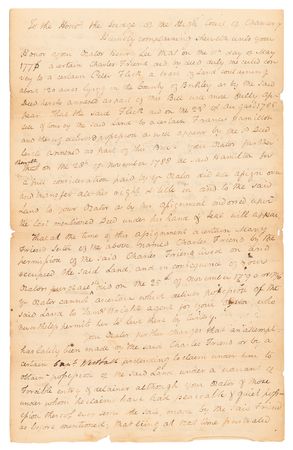 To the Honor the Judge of the High Court of Chancery
Humbly complaining sheweth unto your
Honor your Orator Henry Lee that on the day of May
1776 a certain Charles Friend did by deed duly executed con
vey to a certain Peter Fleck a tract of Land containing
about 120 acres lying in the County of Berkley as by the said
Deed hereto annexed as part of this Bill will more fully ap
pear. That the said Fleck did on the 23d of August 1785
the said Land to a certain Francis Hamilton
and
annexed as part of this Bill. Your Orator further
that on the 28th of November 1788 the said Hamilton for
a full consideration paid by yr Orator did assign over
and transfer all his right & title in and to the said
Land to your Orator as by the assignment indorsed upon
the last mentioned Deed under his hand & Seal will appear
That at the time of this assignment a certain
Friend Sister of the above named Charles Friend by the
permission of the said Charles Friend lived on and
occupied the said Land, and in consequence of your
Orators purchase did on the 25th of November
yr Orator cannot ascertain which deliver possession of the
said Land to James Wright agent for your Orator who
nevertheless permitted her to live there by
Your Orator further charges that an attempt
has lately been made by the said Charles Friend or by a
certain pretending to claim under him to
obtain possession of the said Land under a warrant of
forcible entry & detainer although your Orator & those
under whom he claims have had peaceable & quiet posses
sion thereof ever since the sale made by the said Friend
as before mentioned; that being at that time